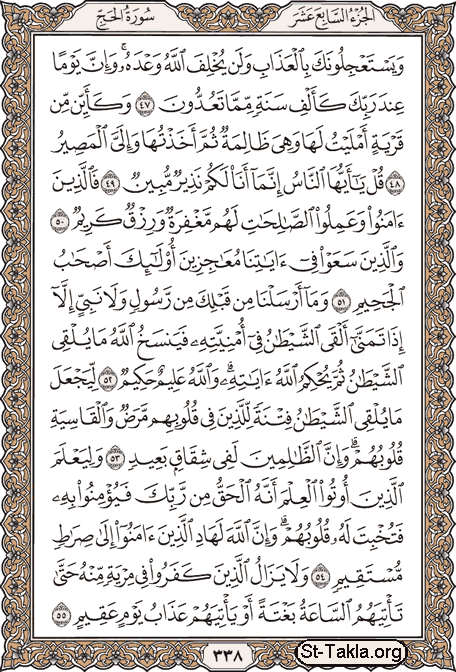 الجزء السابع عشر
سورة الحج
وَيَسْتَعْجِلُونَكَ بِٱلْعَذَابِ وَلَن يُخْلِفَ ٱللَّهُ وَعْدَهُۥ ۚ وَإِنَّ يَوْمًا
عِندَ رَبِّكَ كَأَلْفِ سَنَةٍ مِّمَّا تَعُدُّونَ ٤٧ وَكَأَيِّن مِّن
قَرْيَةٍ أَمْلَيْتُ لَهَا وَهِىَ ظَالِمَةٌ ثُمَّ أَخَذْتُهَا وَإِلَىَّ ٱلْمَصِيرُ
٤٨ قُلْ يَـٰٓأَيُّهَا ٱلنَّاسُ إِنَّمَآ أَنَا۠ لَكُمْ نَذِيرٌ مُّبِينٌ ٤٩ فَٱلَّذِينَ
ءَامَنُوا۟ وَعَمِلُوا۟ ٱلصَّـٰلِحَـٰتِ لَهُم مَّغْفِرَةٌ وَرِزْقٌ كَرِيمٌ ٥٠
وَٱلَّذِينَ سَعَوْا۟ فِىٓ ءَايَـٰتِنَا مُعَـٰجِزِينَ أُو۟لَـٰٓئِكَ أَصْحَـٰبُ
ٱلْجَحِيمِ ٥١ وَمَآ أَرْسَلْنَا مِن قَبْلِكَ مِن رَّسُولٍ وَلَا نَبِىٍّ إِلَّآ
إِذَا تَمَنَّىٰٓ أَلْقَى ٱلشَّيْطَـٰنُ فِىٓ أُمْنِيَّتِهِۦ فَيَنسَخُ ٱللَّهُ مَا يُلْقِى
ٱلشَّيْطَـٰنُ ثُمَّ يُحْكِمُ ٱللَّهُ ءَايَـٰتِهِۦ ۗ وَٱللَّهُ عَلِيمٌ حَكِيمٌ ٥٢ لِّيَجْعَلَ
مَا يُلْقِى ٱلشَّيْطَـٰنُ فِتْنَةً لِّلَّذِينَ فِى قُلُوبِهِم مَّرَضٌ وَٱلْقَاسِيَةِ
قُلُوبُهُمْ ۗ وَإِنَّ ٱلظَّـٰلِمِينَ لَفِى شِقَاقٍۭ بَعِيدٍ ٥٣ وَلِيَعْلَمَ
ٱلَّذِينَ أُوتُوا۟ ٱلْعِلْمَ أَنَّهُ ٱلْحَقُّ مِن رَّبِّكَ فَيُؤْمِنُوا۟ بِهِۦ
فَتُخْبِتَ لَهُۥ قُلُوبُهُمْ ۗ وَإِنَّ ٱللَّهَ لَهَادِ ٱلَّذِينَ ءَامَنُوٓا۟ إِلَىٰ صِرَٰطٍ
مُّسْتَقِيمٍ ٥٤ وَلَا يَزَالُ ٱلَّذِينَ كَفَرُوا۟ فِى مِرْيَةٍ مِّنْهُ حَتَّىٰ
تَأْتِيَهُمُ ٱلسَّاعَةُ بَغْتَةً أَوْ يَأْتِيَهُمْ عَذَابُ يَوْمٍ عَقِيمٍ ٥٥
٣٣٨
St-Takla.org